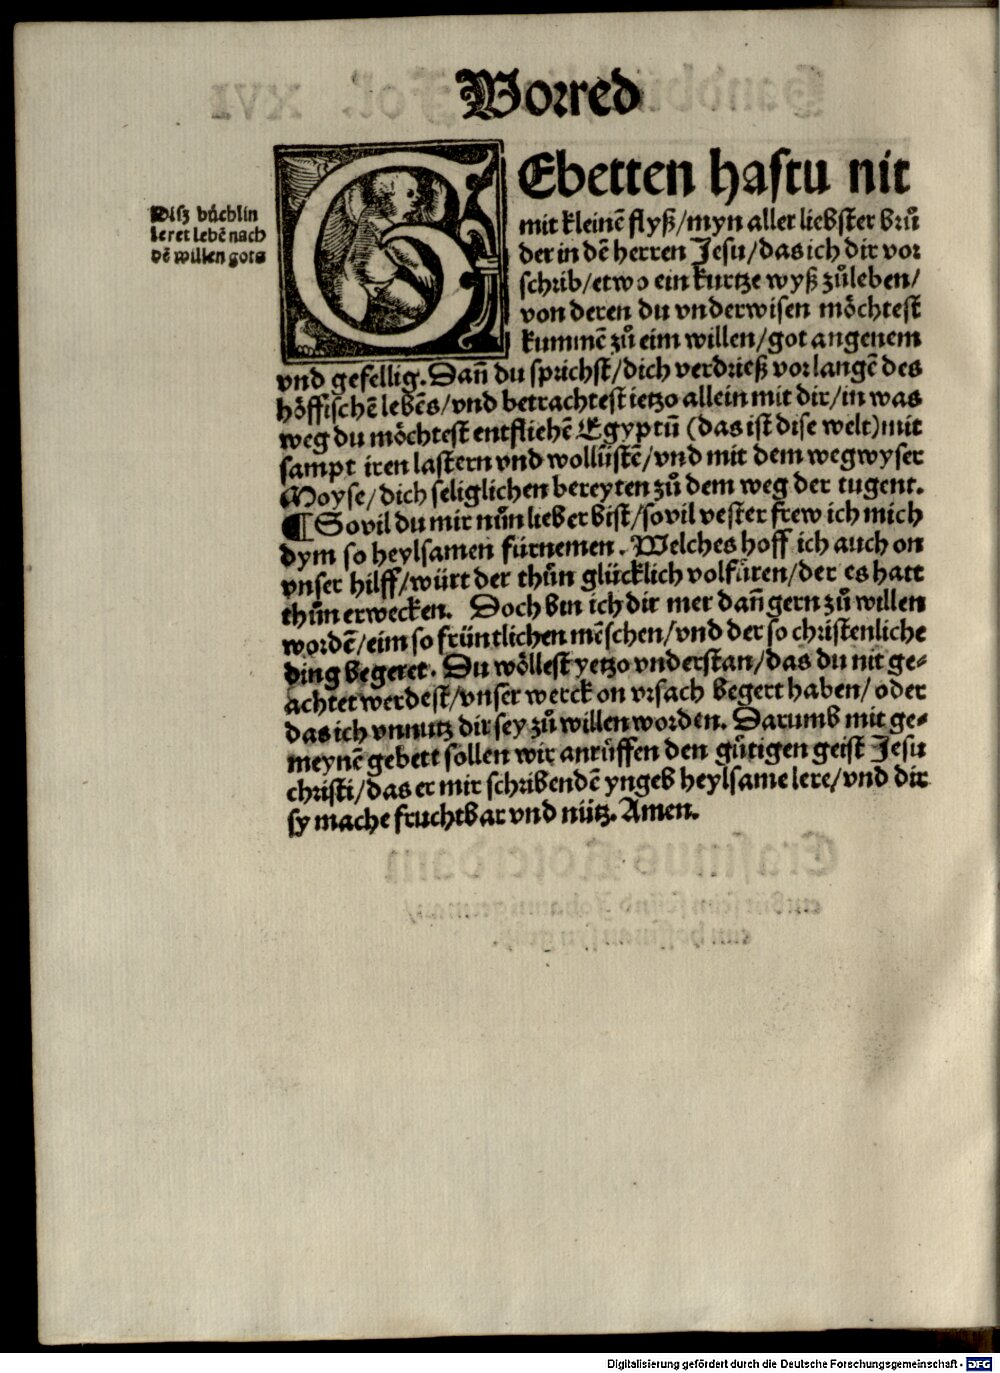 Vorred
Diſz bůchlin
leret lebē nach
dē willen gots
GEbetten haſtu nit
mit kleinē flyß/myn aller liebſter brů
der in dē herren Jeſu/das ich dir vor
ſchrib/etwo ein kurtze wyß zůleben/
von deren du vnderwiſen möchteſt
kummē zů eim willen/got angenem
vnd gefellig. Dañ du ſprichſt/dich verdrieß vor langē des
höffiſchē lebēs/vnd betrachteſt ietzo allein mit dir/in was
weg du möchteſt entfliehē Egyptū (das iſt diſe welt) mit
ſampt iren laſtern vnd wollüſtē/vnd mit dem wegwyſer
Moyſe/dich ſeliglichen bereyten zů dem weg der tugent.
¶ Sovil du mir nůn lieber biſt/ſovil veſter frew ich mich
dym ſo heylſamen fürnemen. Welches hoff ich auch on
vnſer hilff/würt der thůn glücklich volfüren/der es hatt
thůn erwecken. Doch bin ich dir mer dañ gern zů willen
wordē/eim ſo früntlichen mēſchen/vnd der ſo chriſtenliche
ding begeret. Du wölleſt yetzo vnderſtan/das du nit ge⸗
achtet werdeſt/vnſer werck on vrſach begert haben/oder
das ich vnnutz dir ſey zů willen worden. Darumb mit ge⸗
meynē gebett ſollen wir anrüffen den gütigen geiſt Jeſu
chriſti/das er mir ſchribendē yngeb heylſame lere/vnd dir
ſy mache fruchtbar vnd nütz. Amen.
Digitalisierung gefördert durch die Deutsche Forschungsgemeinschaft - DFG